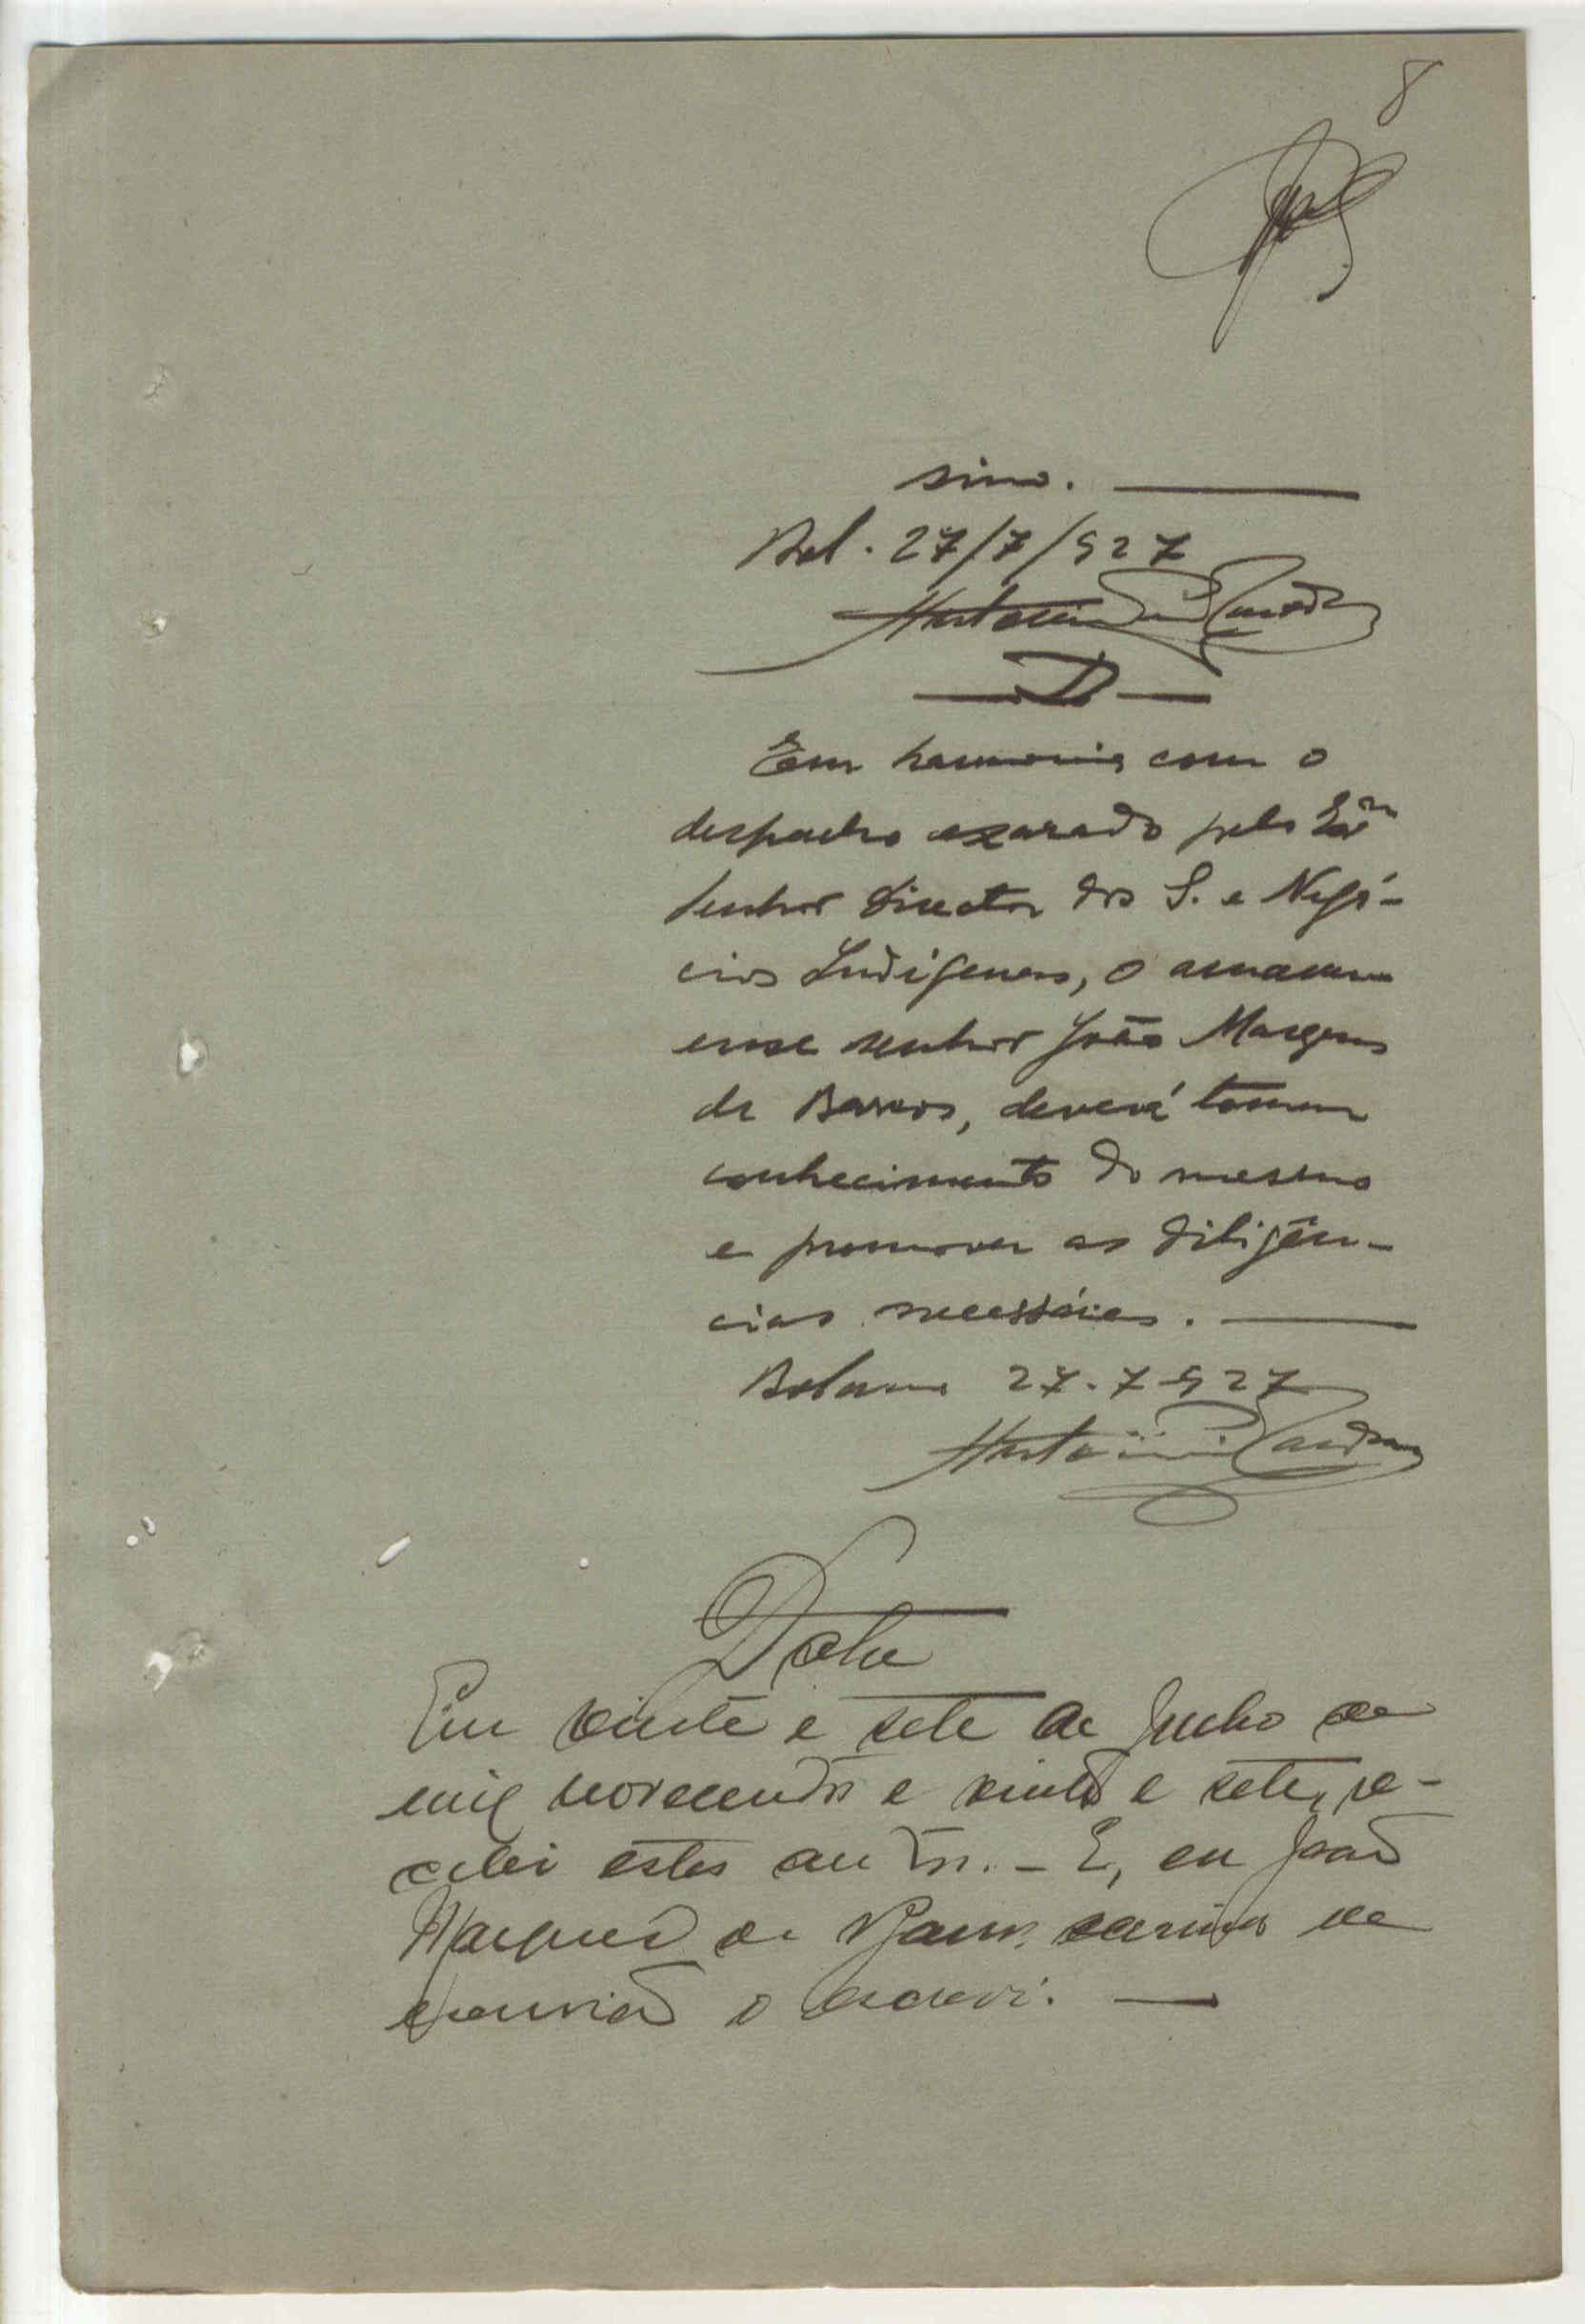 8
sino.
Bol. 27/7/927
D
Em harmonia com o
despacho exarado pelo Exmo
Senhor Director dos S. e Negó-
cios Indígenas, o amanu-
ense senhor João Marques
de Barros, deverá tomar
conhecimento do mesmo
e promover as diligên-
cias necessárias.
Bolama 27-7-927
Data
Em vinte e sete de Julho de
mil novecentos e vinte e sete, re-
cebi estes autos. - E, eu João
Marques de Barros, servindo de
escrivão o escrevi.